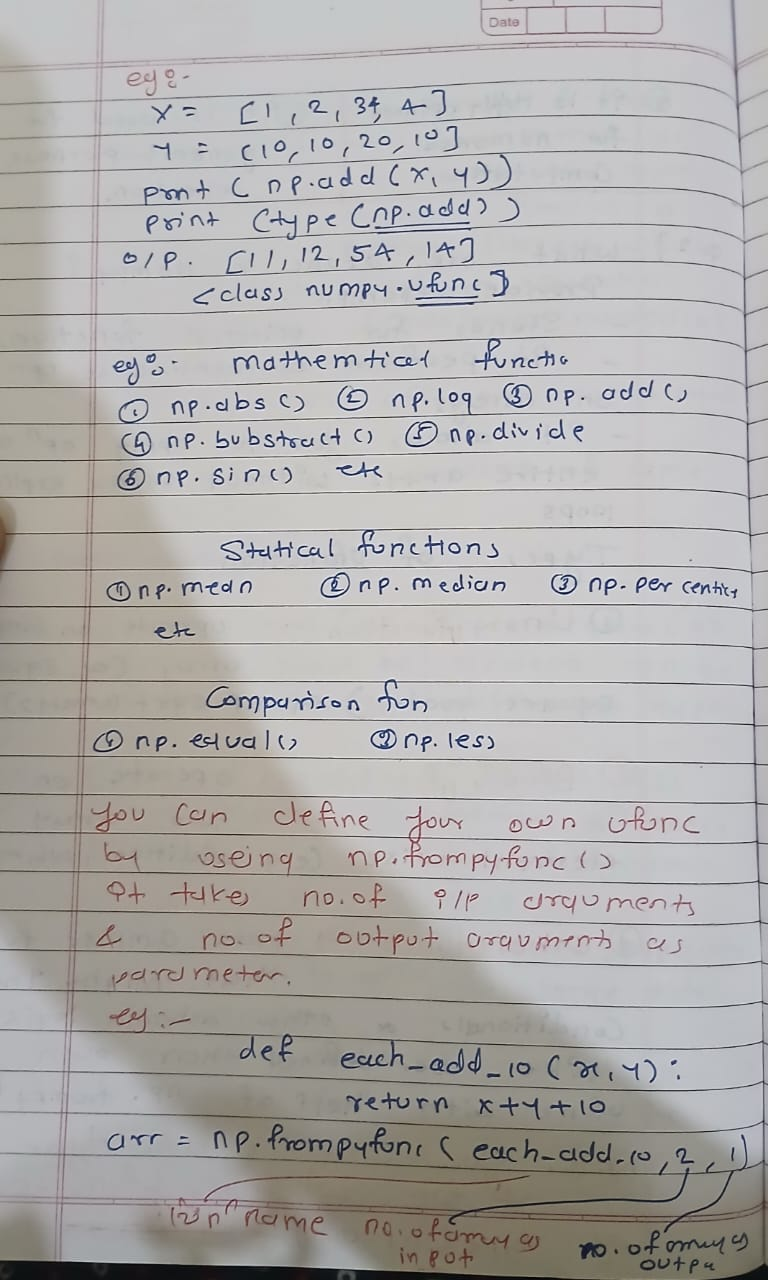 Date
eg :-
x = [1, 2, 34, 4]
y = [10, 10, 20, 10]
print (np.add(x, y))
print (type(np.add))
O/P. [11, 12, 54, 14]
<class numpy.ufunc]
eg :- mathemtical functio
① np.abs() ② np.log ③ np.add()
④ np.substract() ⑤ np.divide
⑥ np.sin() etc
Statical functions
① np.mean ② np.median ③ np.
etc
Comparison fun
① np.equal() ② np.less
you can define your own ufunc
by useing np.frompyfunc()
It takes no.of i/p arguments
& no.of output arguments as
parameter.
eg :-
def each_add_10 (x, y):
return x+y+10
arr = np.frompyfunc (each_add_10, 2, 1)
name no.of
input no.of